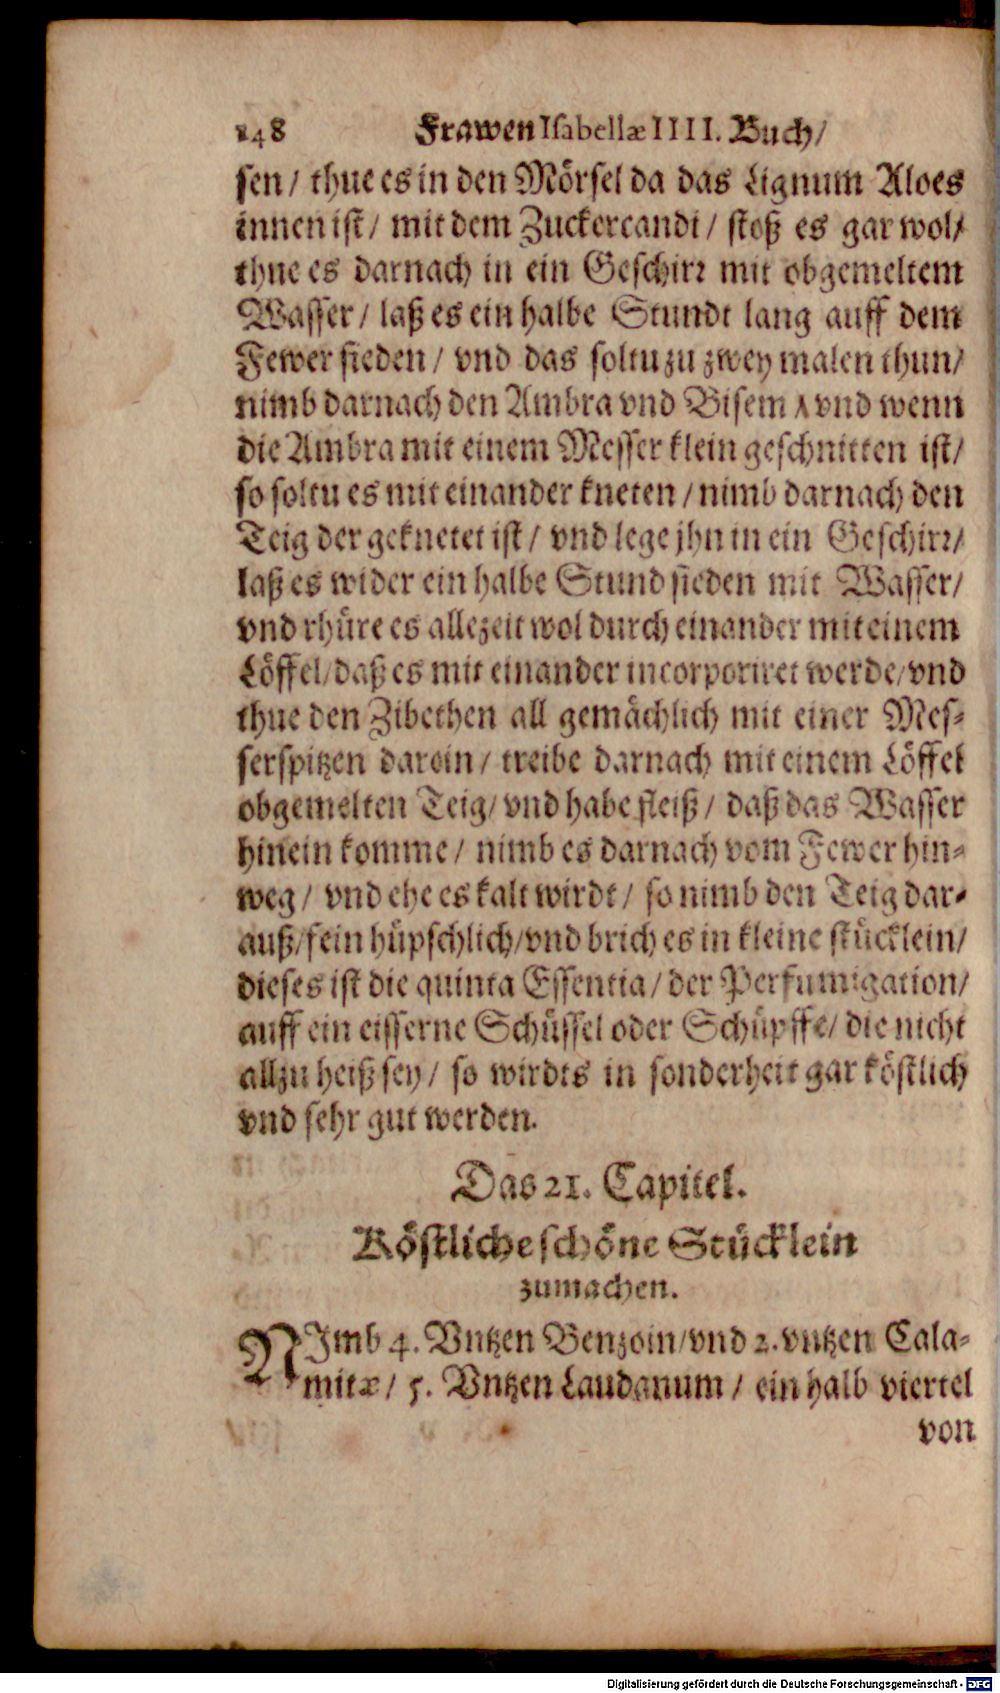 248 Frawen Isabellæ IIII. Buch/
sen / thue es in den Mörsel da das Lignum Aloes
innen ist / mit dem Zuckercandi / stoß es gar wol/
thue es darnach in ein Geschirr mit obgemeltem
Wasser / laß es ein halbe Stundt lang auff dem
Fewer sieden / vnd das soltu zu zwey malen thun/
nimb darnach den Ambra vnd Bisem / vnd wenn
die Ambra mit einem Messer klein geschnitten ist/
so soltu es mit einander kneten / nimb darnach den
Teig der geknetet ist / vnd lege jhn in ein Geschirr/
laß es wider ein halbe Stund sieden mit Wasser/
vnd rhüre es allezeit wol durch einander mit einem
Löffel/daß es mit einander incorporiret werde/vnd
thue den Zibethen all gemächlich mit einer Mes-
serspitzen darein / treibe darnach mit einem Löffel
obgemelten Teig/ vnd habe fleiß / daß das Wasser
hinein komme / nimb es darnach vom Fewer hin-
weg / vnd ehe es kalt wirdt / so nimb den Teig dar-
auß/fein hüpschlich/vnd brich es in kleine stücklein/
dieses ist die quinta Essentia / der Perfumigation/
auff ein eisserne Schüssel oder Schüpffe/ die nicht
allzu heiß sey / so wirdts in sonderheit gar köstlich
vnd sehr gut werden.
Das 21. Capitel.
Köstliche schöne Stücklein
zumachen.
NImb 4. Vntzen Benzoin/vnd 2. vntzen Cala-
mitæ / 5. Vntzen Laudanum / ein halb viertel
von
Digitalisierung gefördert durch die Deutsche Forschungsgemeinschaft - DFG